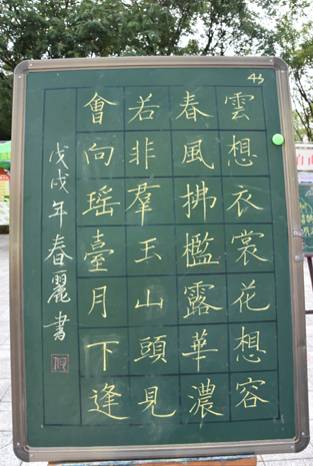 雲想衣裳花想容
春風拂檻露華濃
若非羣玉山頭見
會向瑶臺月下逢
戊戌年春麗書
43
自由